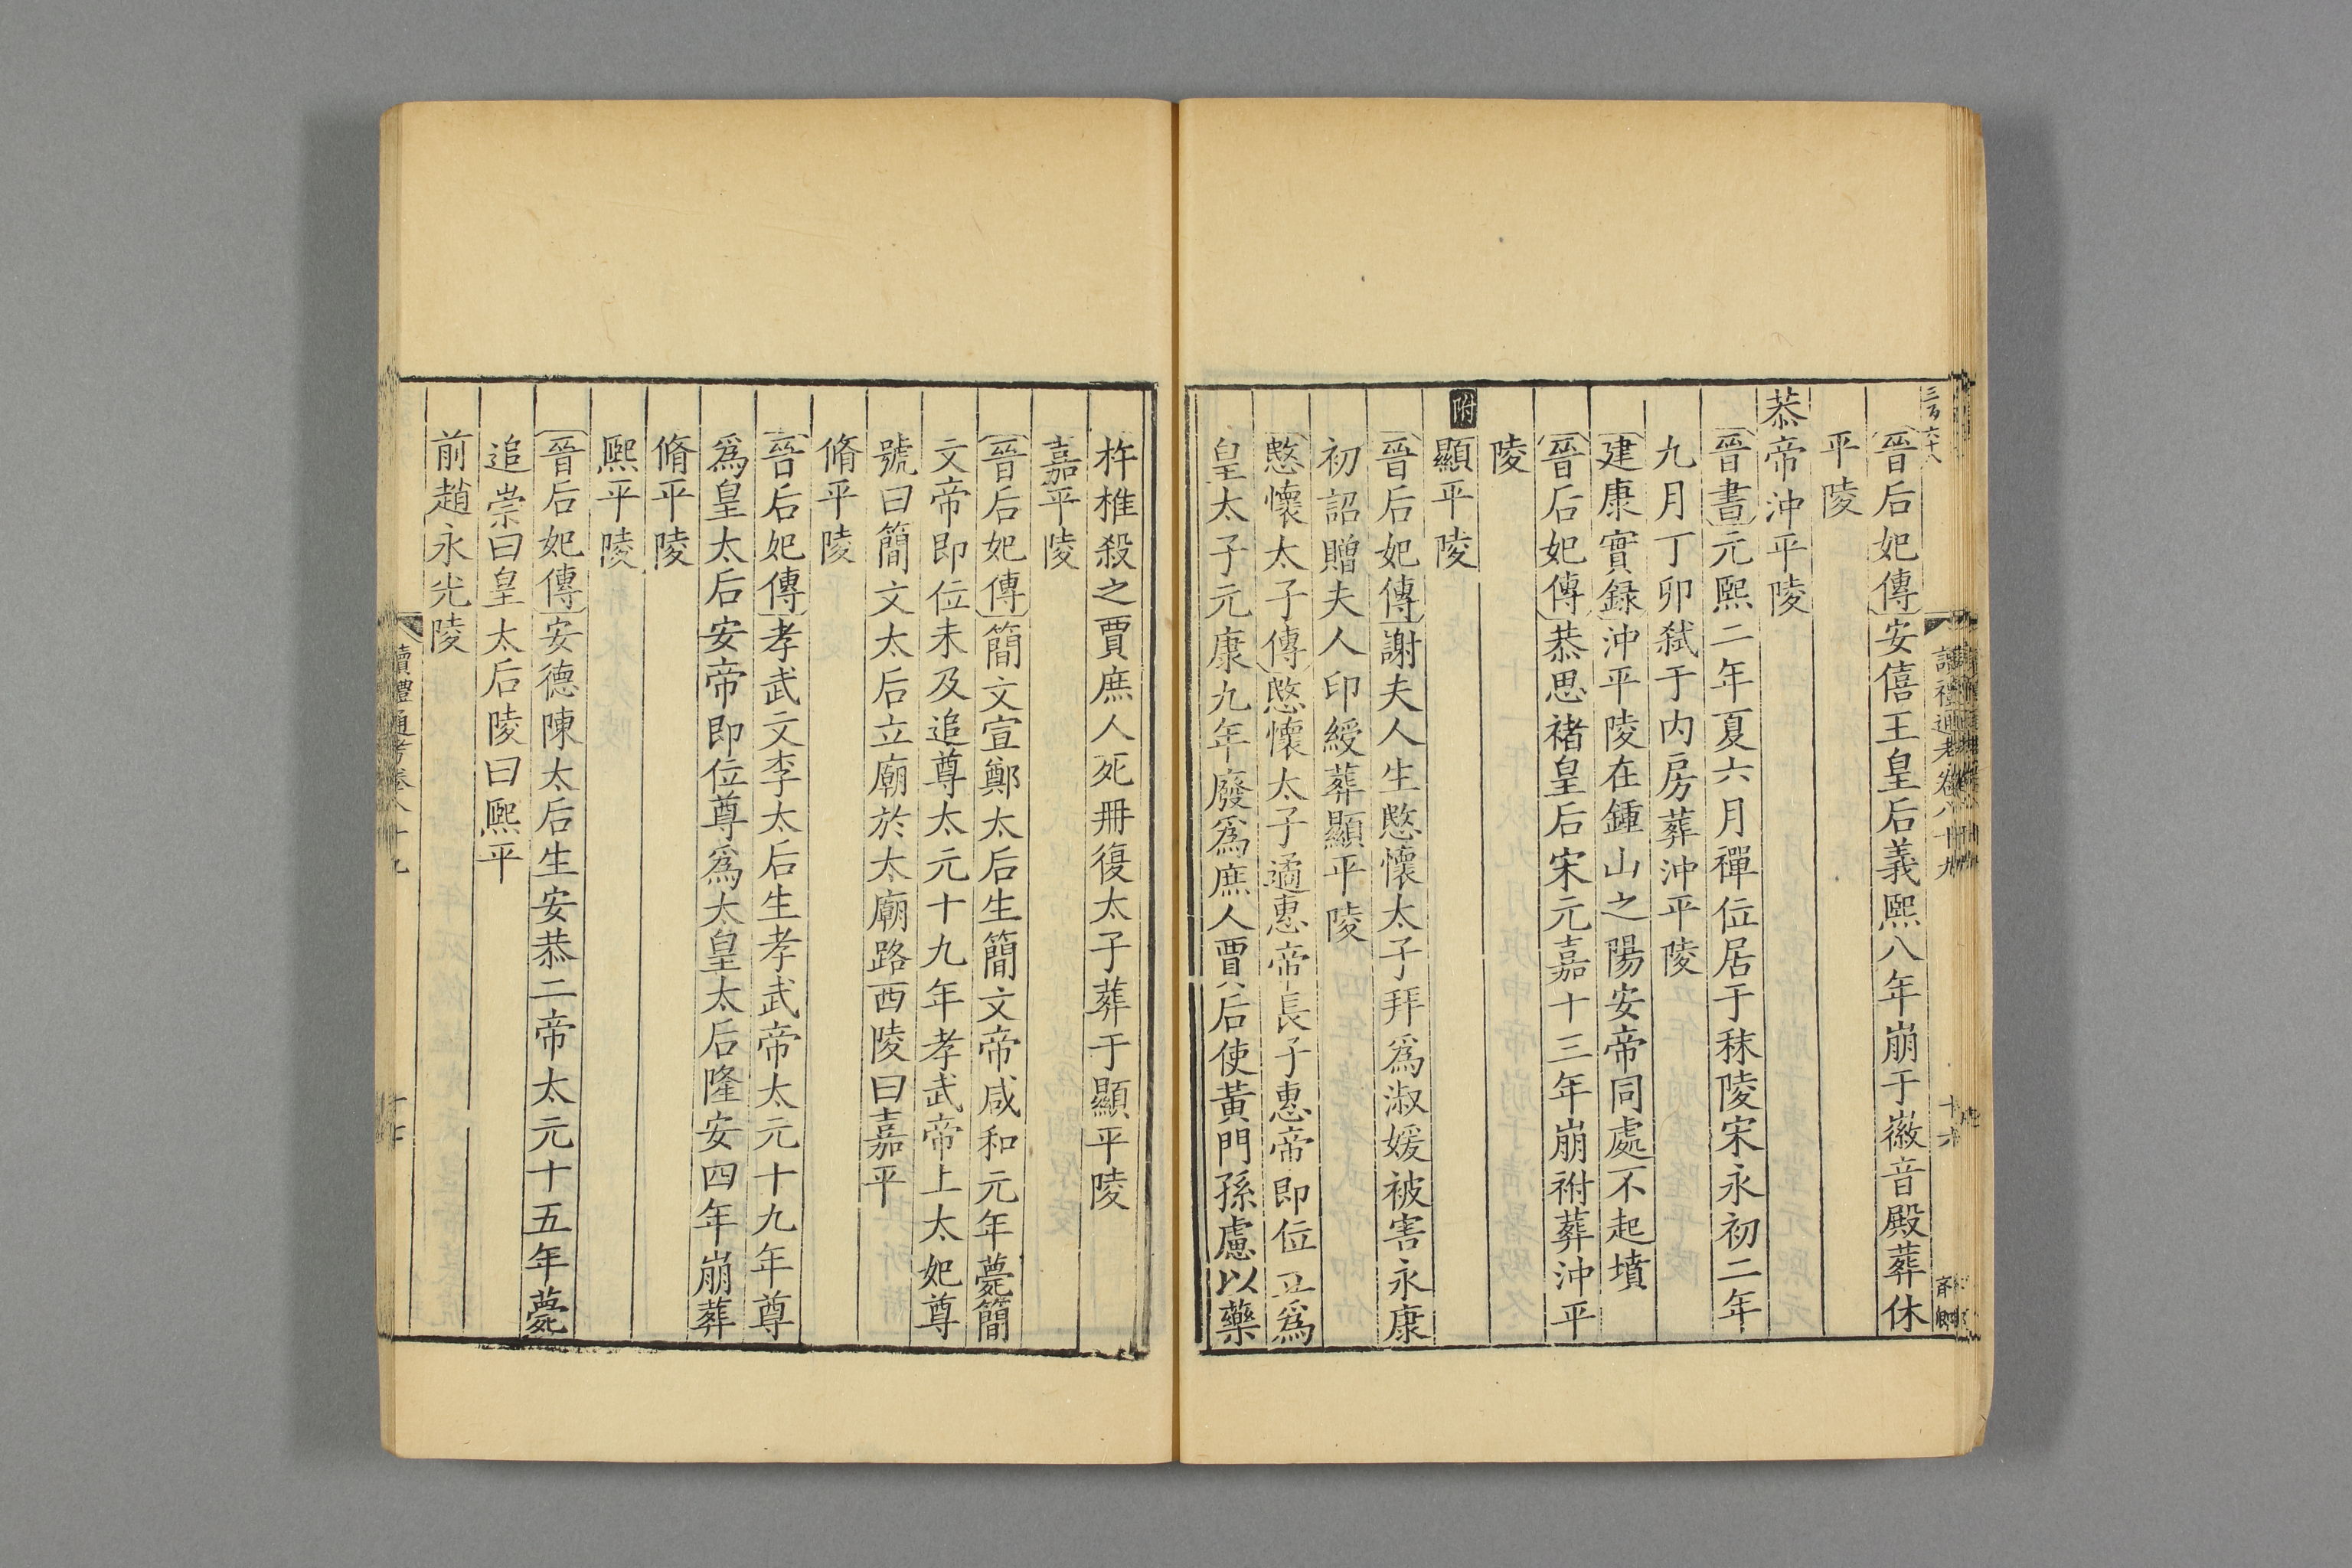 三百六十八
讀禮通考卷八十九
十六
〔晉后妃傳〕安僖王皇后義熙八年崩于徽音殿葬休
平陵
恭帝沖平陵
〔晉書〕元熙二年夏六月禪位居于秣陵宋永初二年
九月丁卯弑于内房葬沖平陵
〔建康實録〕沖平陵在鍾山之陽安帝同處不起墳
〔晉后妃傳〕恭思褚皇后宋元嘉十三年崩祔葬沖平
陵
附顯平陵
〔晉后妃傳〕謝夫人生愍懷太子拜爲淑媛被害永康
初詔贈夫人印綬葬顯平陵
〔愍懷太子傳〕愍懷太子遹惠帝長子惠帝即位立爲
皇太子元康九年廢爲庶人賈后使黃門孫慮以藥
杵椎殺之賈庶人死冊復太子葬于顯平陵
嘉平陵
〔晉后妃傳〕簡文宣鄭太后生簡文帝咸和元年薨簡
文帝即位未及追尊太元十九年孝武帝上太妃尊
號曰簡文太后立廟於太廟路西陵曰嘉平
脩平陵
〔晉后妃傳〕孝武文李太后生孝武帝太元十九年尊
爲皇太后安帝即位尊爲太皇太后隆安四年崩葬
脩平陵
熙平陵
〔晉后妃傳〕安德陳太后生安恭二帝太元十五年薨
追崇曰皇太后陵曰熙平
前趙永光陵
讀禮通考卷八十九
十七